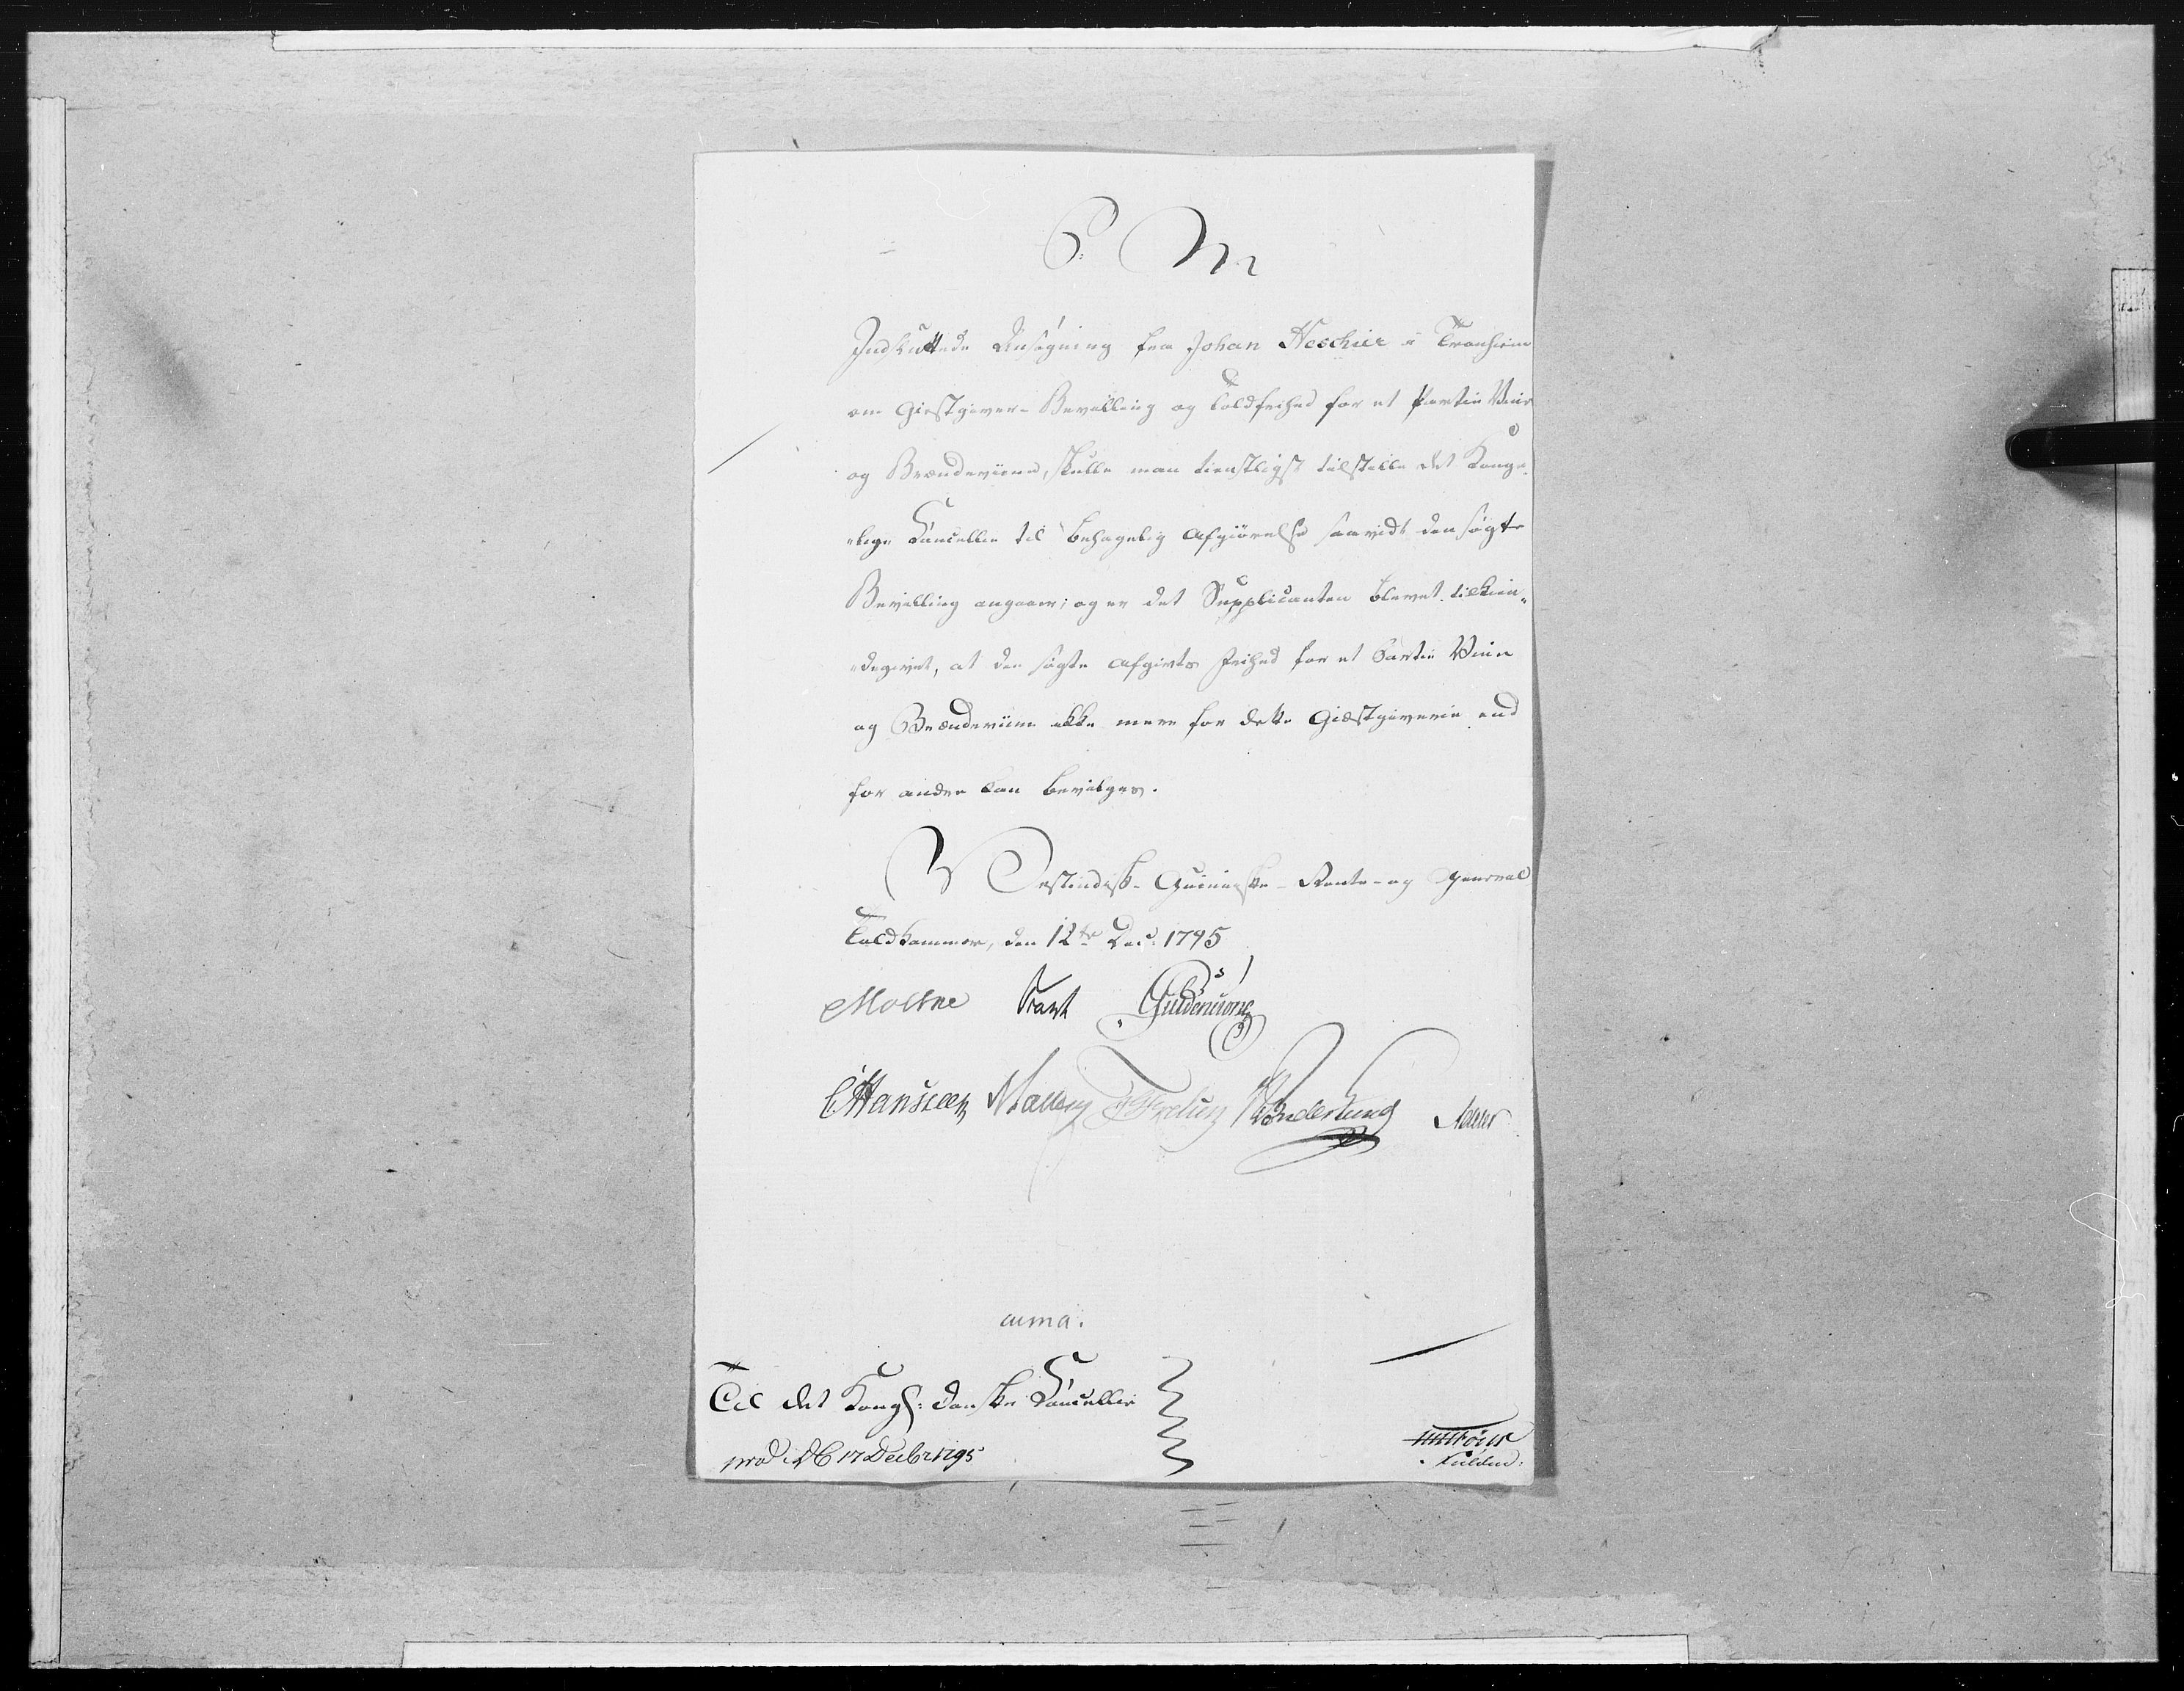 P. M
Indsluttede Ansøgning fra Johan Heschier i Tronhiem
om Giestgiver-Bevilling og Toldfrihed for et Partie Viin
og Brændeviine, skulle man tienstligst tilstille det Konge-
-lige Cancellie til behagelig Afgiørelse saavidt den søgte
Bevilling angaaer; og er det Supplicanten blevet tilkien-
-degivet, at den søgte Afgivts Frihed for et Partie Viin
og Brændeviin ikke mere for dette Giæstgiverie end
for andre kan bevilges.
Vestindisk-Guineiske-Rente-og General
Toldkammer, den 12te Dec: 1795
Moltke Guldencrone
CHansen Wonderlung
Til det Kongl: danske Cancellie
prod: DC 17 Decbr 1795